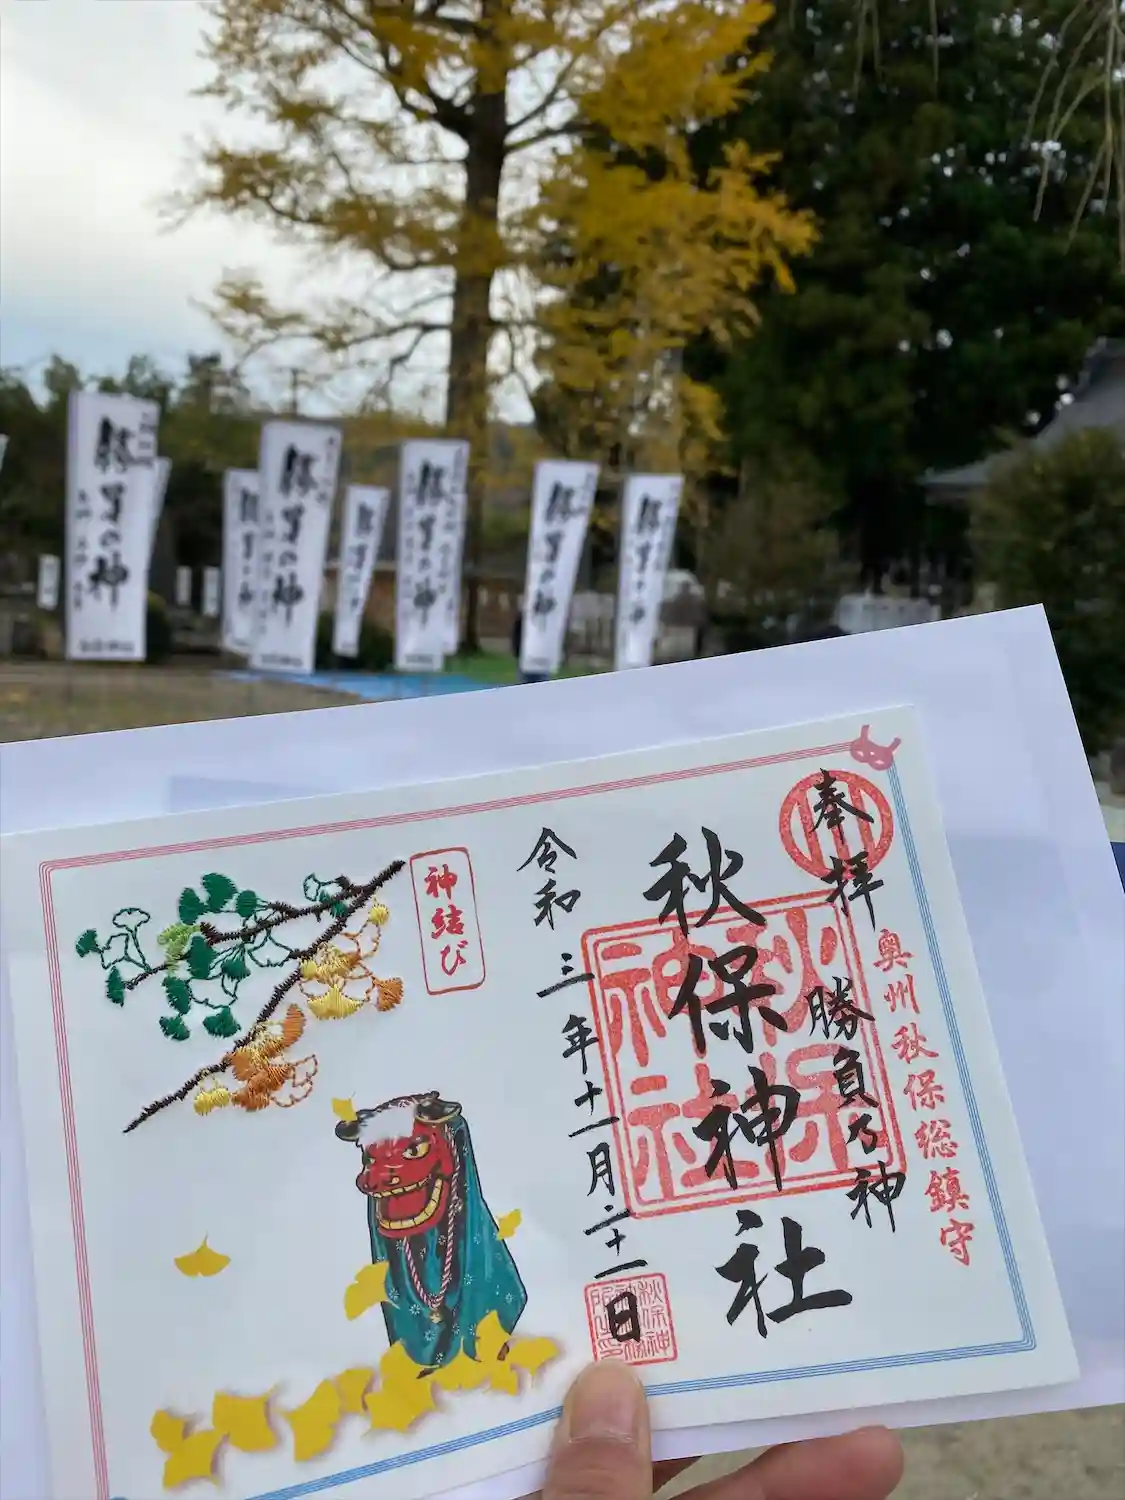 奉拝
奥州秋保総鎮守
勝負乃神
秋保神社
秋保
神社
令和三年十一月二十一日
神結び
勝負の神
勝負の神
勝負の神
勝負の神
勝負の神